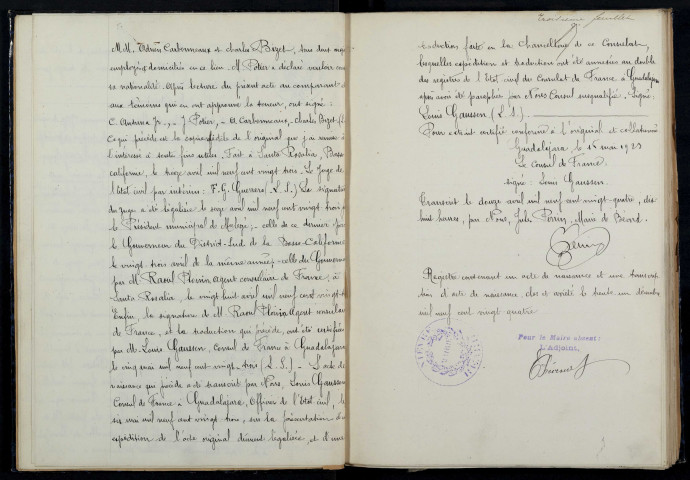 MM. Adrien Carbonneaux et Charles Bizet, tous deux
employés domiciliés en ce lieu. M. Potier a déclaré vouloir
sa nationalité. Après lecture du présent acte au comparant
aux témoins qui en ont approuvé la teneur, ont signé:
C. Andrma Jr., - J. Potier, - A. Carbonneaux, - Charles Bizet.
Ce qui précède est la copie fidèle de l'original que j'ai remise à
l'intéressé à toute fins utiles. Fait à Santa Rosalia, Basse
californie, le treize avril mil neuf cent vingt trois. Le Juge de
l'état civil par intérim: F. G. Guerrero. (L. S.) La signature
du juge a été légalisée le seize avril mil neuf cent vingt trois
le Président municipal de Mulegé, - celle de ce dernier par
le Gouverneur du District-Sud de la Basse-Californie
le vingt trois avril de la même année; - celle du Gouverneur
par M. Raoul Plouin agent consulaire de France, à
Santa Rosalia, le vingt huit avril mil neuf cent vingt
Enfin, la signature de M. Raoul Plouin agent consulaire
de France, et la traduction qui précède, ont été certifiées
par M. Louis Gaussen, Consul de France à Guadalajara
le cinq mai mil neuf cent vingt-trois (L. S.) - L'acte de
naissance qui précède a été transcrit par Nous, Louis Gaussen
Consul de France à Guadalajara, Officier de l'état civil, le
six mai mil neuf cent vingt trois, sur la présentation d'une
expédition de l'acte original dûment légalisée, et d'une
troisième feuillet
traduction faite en la Chancellerie de ce Consulat,
lesquelles expédition et traduction ont été annexées au double
des registres de l'état civil du Consulat de France à Guadalajara
après avoir été paraphées par Nous Consul susqualifié. - Signé:
Louis Gaussen (L. S.)
Pour extrait certifié conforme à l'original et collationné
Guadalajara, le 15 mai 1923
Le Consul de France.
Signé: Louis Gaussen.
Transcrit le douze avril mil neuf cent vingt quatre, dix
huit heures, par Nous, Jules Perrin, Maire de Béard.
Registre contenant un acte de naissance et une transcrip
tion d'acte de naissance, clos et arrêté le trente un décembre
mil neuf cent vingt quatre
Pour le Maire absent:
L'Adjoint,